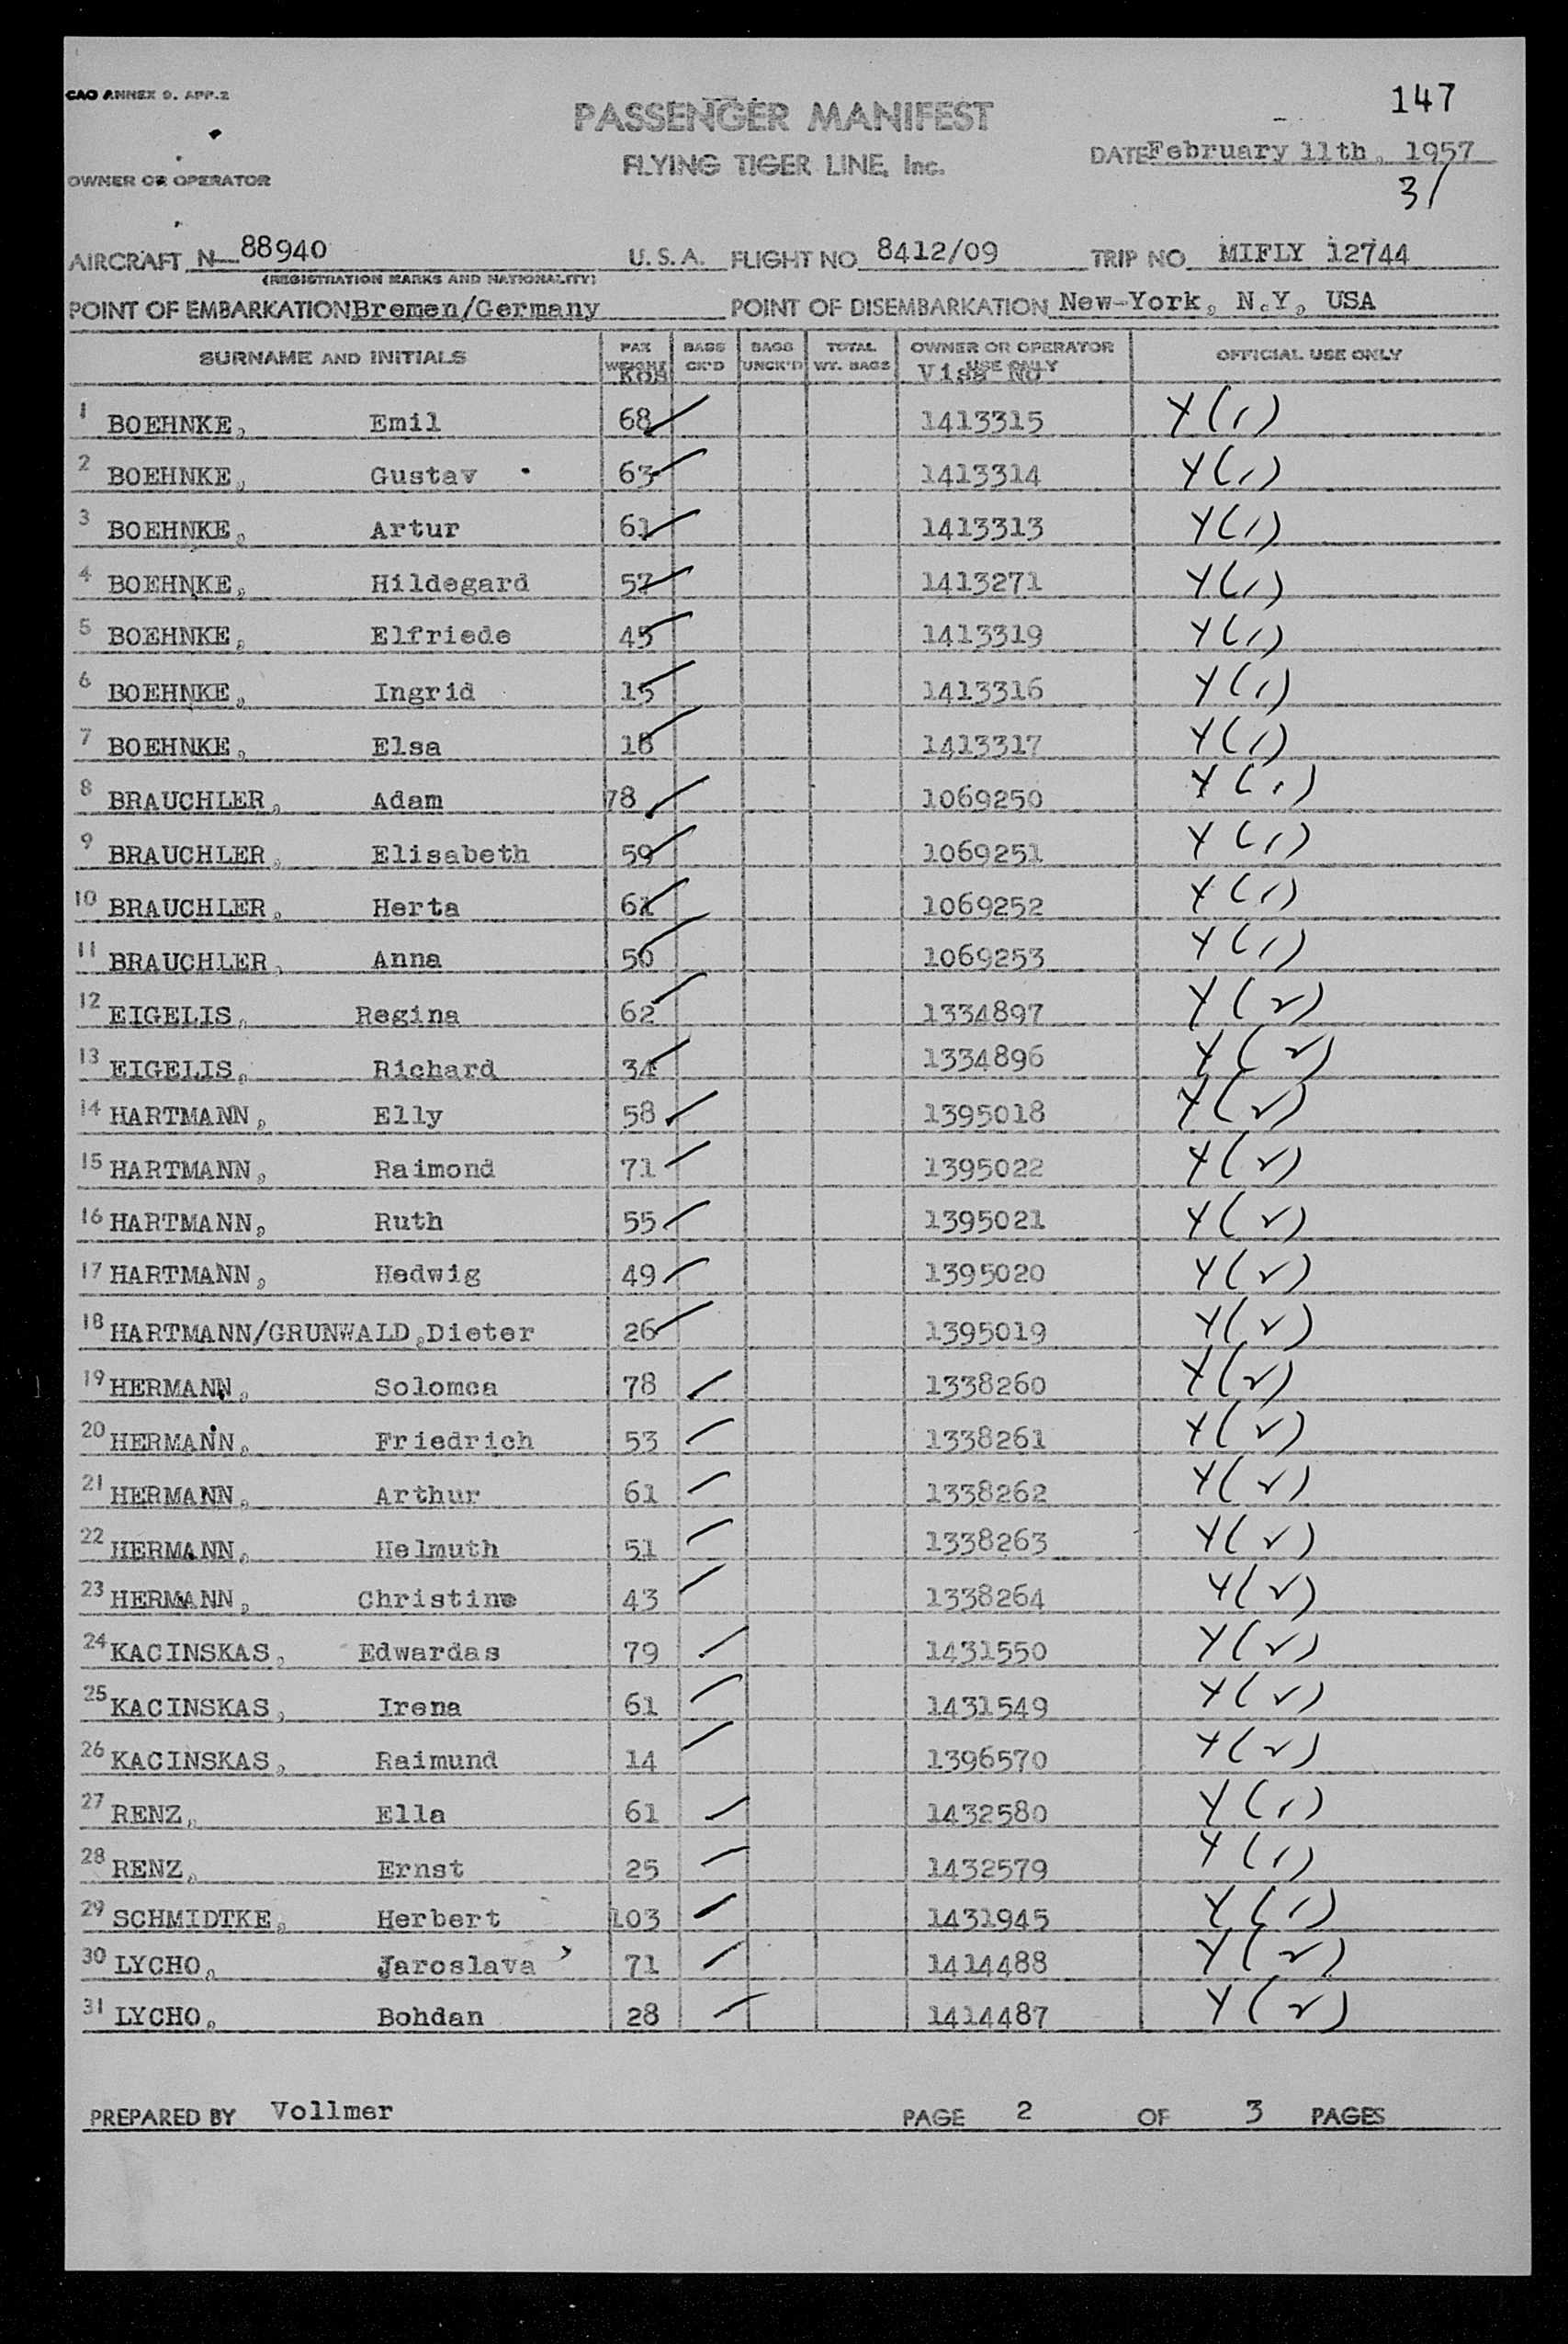 CAO ANNEX 9. APP.2
147
PASSENGER MANIFEST
FLYING TIGER LINE, Inc.
DATE February 11th, 1957
31
OWNER OR OPERATOR
AIRCRAFT N-88940 U.S.A. FLIGHT NO 8412/09 TRIP NO MIFLY 12744
(REGISTRATION MARKS AND NATIONALITY)
POINT OF EMBARKATION Bremen/Germany POINT OF DISEMBARKATION New-York, N.Y, USA
SURNAME AND INITIALS PAX WEIGHT KGS BAGS CK'D BAGS UNCK'D TOTAL WT. BAGS OWNER OR OPERATOR USE ONLY Visa No OFFICIAL USE ONLY
1 BOEHNKE, Emil 68 1413315 Y(1)
2 BOEHNKE, Gustav 63 1413314 Y(1)
3 BOEHNKE, Artur 61 1413313 Y(1)
4 BOEHNKE, Hildegard 57 1413271 Y(1)
5 BOEHNKE, Elfriede 45 1413319 Y(1)
6 BOEHNKE, Ingrid 15 1413316 Y(1)
7 BOEHNKE, Elsa 1413317 Y(1)
8 BRAUCHLER, Adam 78 1069250 Y(1)
9 BRAUCHLER, Elisabeth 59 1069251 Y(1)
10 BRAUCHLER, Herta 61 1069252 Y(1)
11 BRAUCHLER, Anna 50 1069253 Y(1)
12 EIGELIS, Regina 62 1334897 Y(2)
13 EIGELIS, Richard 34 1334896 Y(2)
14 HARTMANN, Elly 58 1395018 Y(2)
15 HARTMANN, Raimond 71 1395022 Y(2)
16 HARTMANN, Ruth 55 1395021 Y(2)
17 HARTMANN, Hedwig 49 1395020 Y(2)
18 HARTMANN/GRUNWALD, Dieter 26 1395019 Y(2)
19 HERMANN, Solomea 78 1338260 Y(2)
20 HERMANN, Friedrich 53 1338261 Y(2)
21 HERMANN, Arthur 61 1338262 Y(2)
22 HERMANN, Helmuth 51 1338263 Y(2)
23 HERMANN, Christine 43 1338264 Y(2)
24 KACINSKAS, Edwardas 79 1431550 Y(2)
25 KACINSKAS, Irena 61 1431549 Y(2)
26 KACINSKAS, Raimund 14 1396570 Y(2)
27 RENZ, Ella 61 1432580 Y(1)
28 RENZ, Ernst 25 1432579 Y(1)
29 SCHMIDTKE, Herbert 103 1431945 Y(1)
30 LYCHO, Jaroslava 71 1414488 Y(2)
31 LYCHO, Bohdan 28 1414487 Y(2)
PREPARED BY Vollmer PAGE 2 OF 3 PAGES